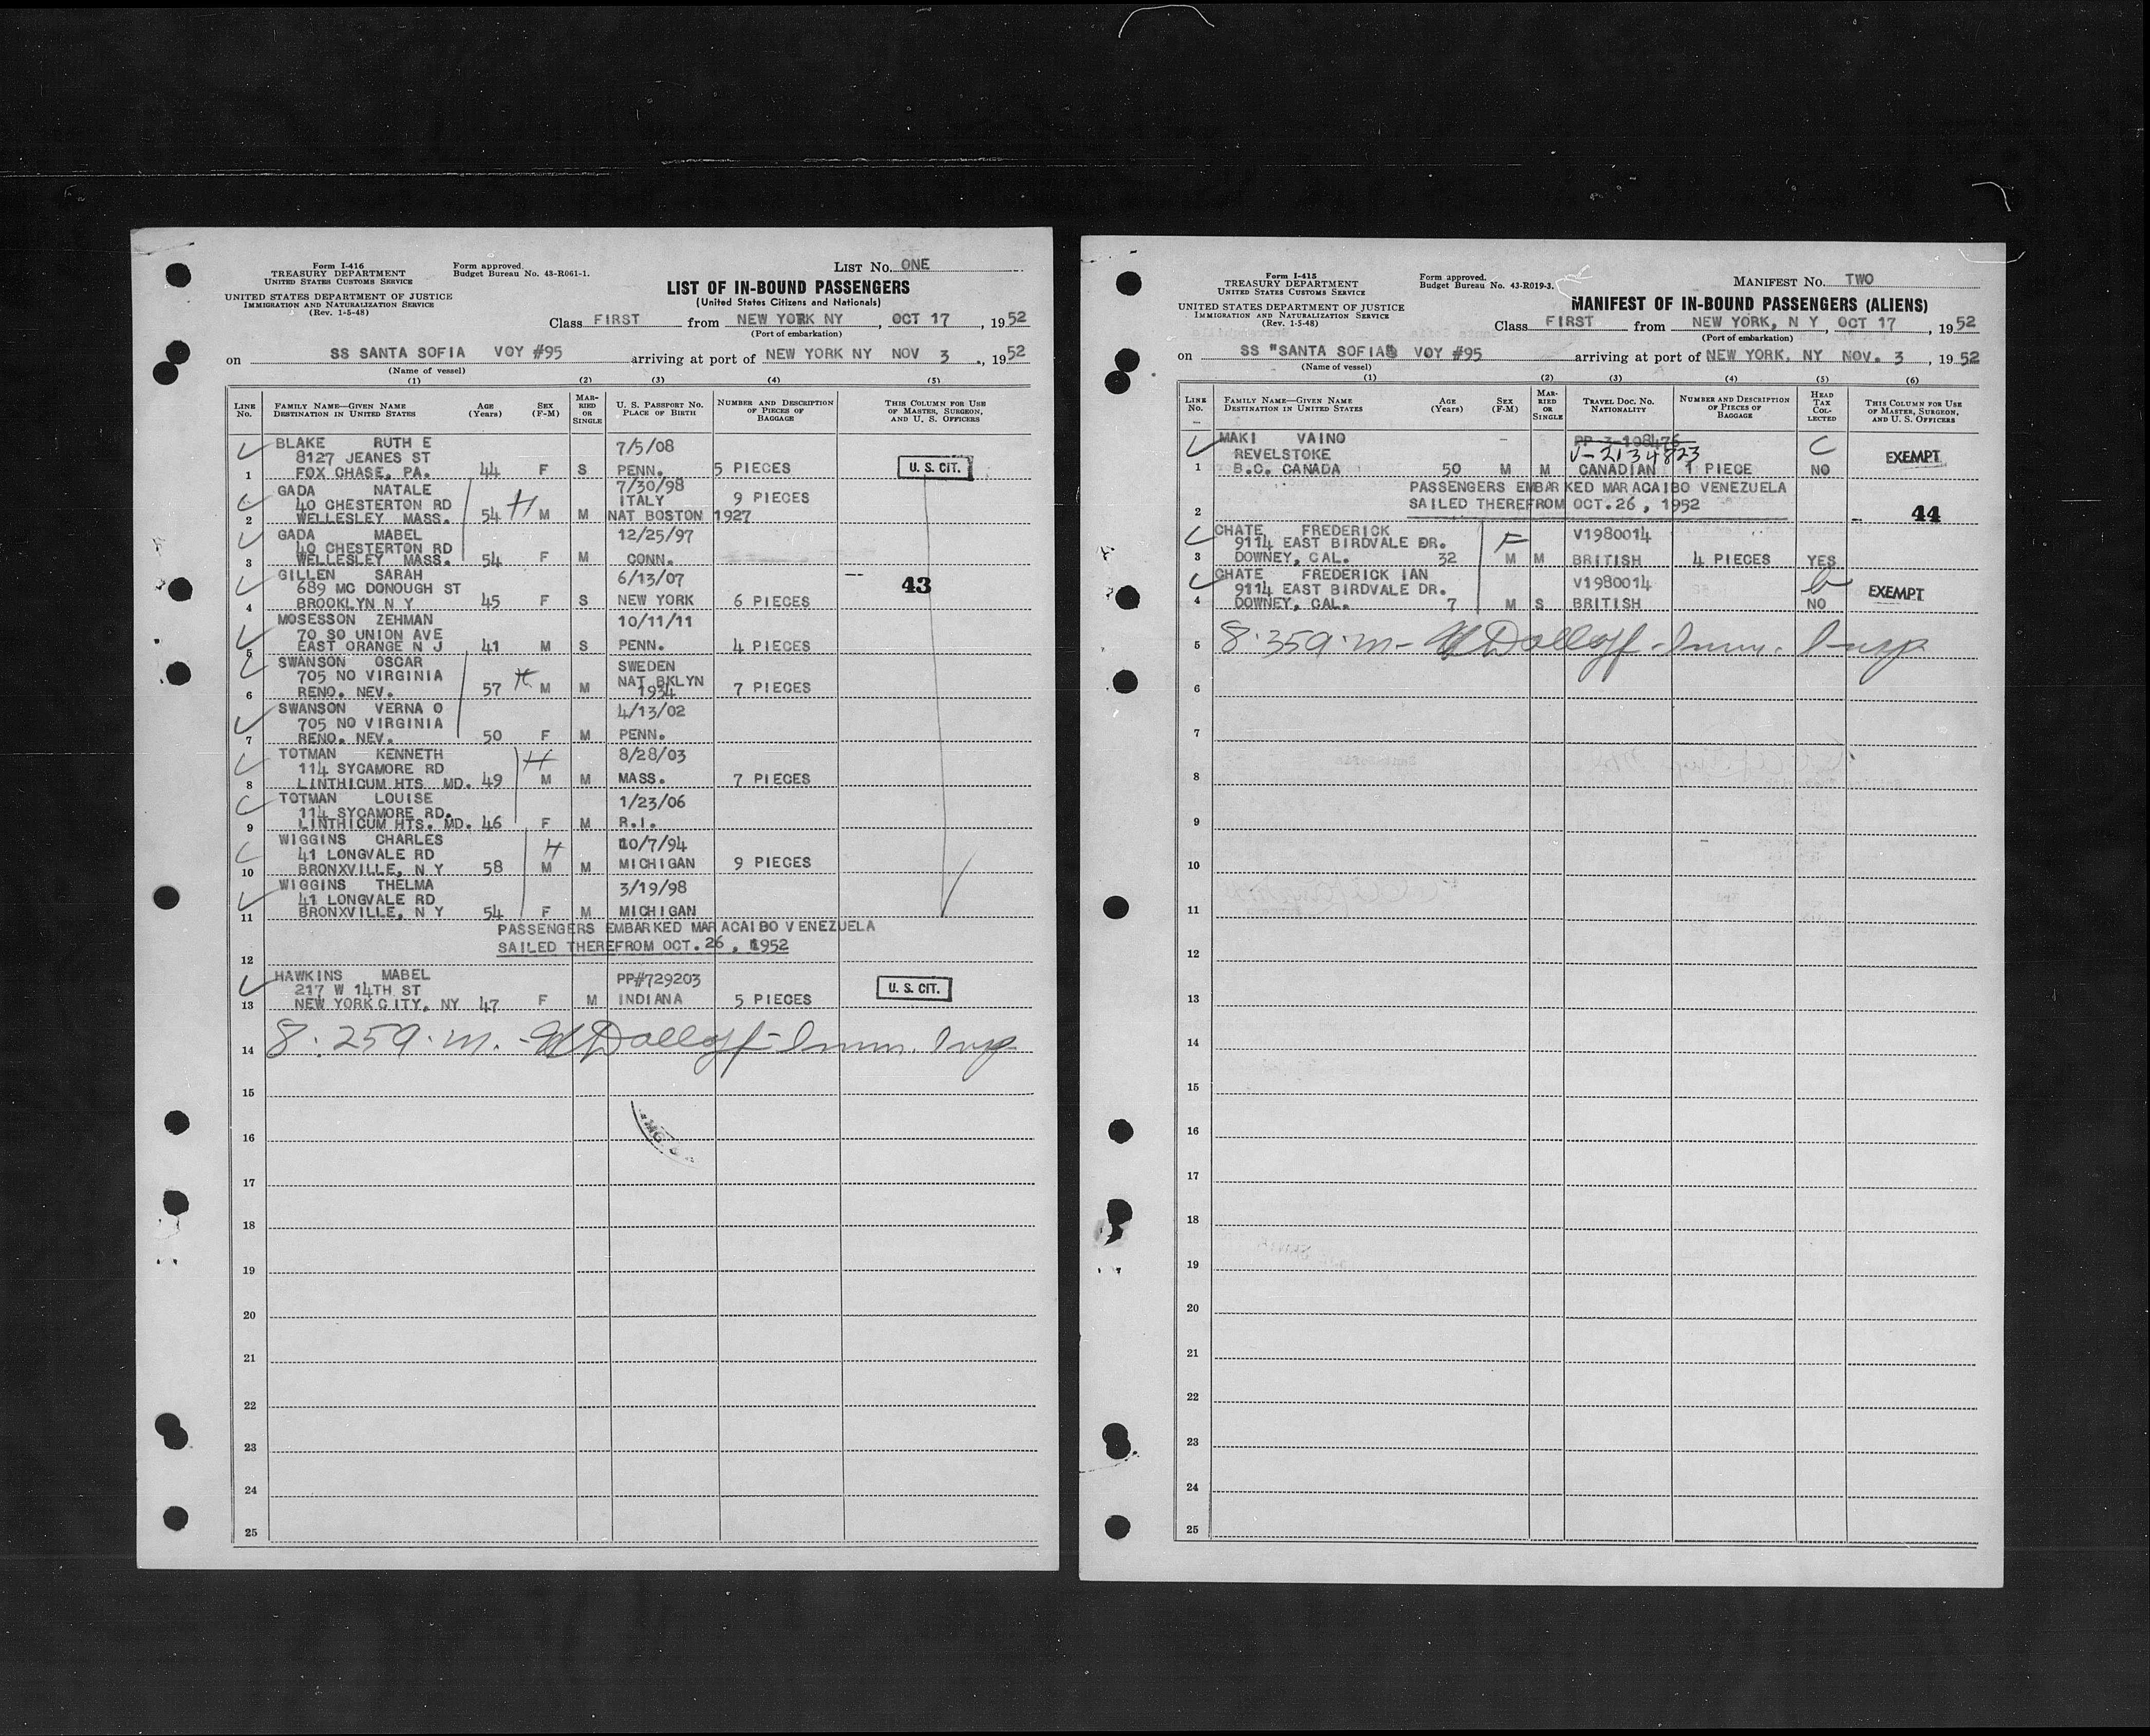 Form I-416
TREASURY DEPARTMENT
UNITED STATES CUSTOMS SERVICE
UNITED STATES DEPARTMENT OF JUSTICE
IMMIGRATION AND NATURALIZATION SERVICE
(Rev. 1-5-48)
Form approved.
Budget Bureau No. 43-R061-1.
LIST NO. ONE
LIST OF IN-BOUND PASSENGERS
(United States Citizens and Nationals)
Class FIRST from NEW YORK NY, OCT 17, 1952
(Port of embarkation)
on SS SANTA SOFIA VOY #95 arriving at port of NEW YORK NY NOV 3, 1952
(Name of vessel)
(1) (2) (3) (4) (5)
LINE No. FAMILY NAME—GIVEN NAME DESTINATION IN UNITED STATES AGE (Years) SEX (F-M) MARRIED OR SINGLE U. S. PASSPORT NO. PLACE OF BIRTH NUMBER AND DESCRIPTION OF PIECES OF BAGGAGE THIS COLUMN FOR USE OF MASTER, SURGEON, AND U. S. OFFICERS
BLAKE RUTH E 7/5/08
8127 JEANES ST
1 FOX CHASE, PA. 44 F S PENN. 5 PIECES U. S. CIT.
GADA NATALE 7/30/98
40 CHESTERTON RD ITALY 9 PIECES
2 WELLESLEY MASS. 54 H M M NAT BOSTON 1927
GADA MABEL 12/25/97
40 CHESTERTON RD
3 WELLESLEY MASS. 54 F M CONN.
GILLEN SARAH 6/13/07 43
689 MC DONOUGH ST
4 BROOKLYN N Y 45 F S NEW YORK 6 PIECES
MOSESSON ZEHMAN 10/11/11
70 SO UNION AVE
5 EAST ORANGE N J 41 M S PENN. 4 PIECES
SWANSON OSCAR SWEDEN
705 NO VIRGINIA NAT BKLYN
6 RENO. NEV. 57 H M M 1934 7 PIECES
SWANSON VERNA O 4/13/02
705 NO VIRGINIA
7 RENO. NEV. 50 F M PENN.
TOTMAN KENNETH H 8/28/03
114 SYCAMORE RD
8 LINTHICUM HTS MD. 49 M M MASS. 7 PIECES
TOTMAN LOUISE 1/23/06
114 SYCAMORE RD.
9 LINTHICUM HTS. MD. 46 F M R.I.
WIGGINS CHARLES H 10/7/94
41 LONGVALE RD
10 BRONXVILLE, N Y 58 M M MICHIGAN 9 PIECES
WIGGINS THELMA 3/19/98
41 LONGVALE RD
11 BRONXVILLE, N Y 54 F M MICHIGAN
PASSENGERS EMBARKED MARACAIBO VENEZUELA
12 SAILED THEREFROM OCT.26, 1952
HAWKINS MABEL PP#729203
217 W 14TH ST
13 NEW YORK CITY, NY 47 F M INDIANA 5 PIECES U. S. CIT.
14 8:25 a.m. Dolloff - Imm. Insp
15
16
17
18
19
20
21
22
23
24
25
Form I-415
TREASURY DEPARTMENT
UNITED STATES CUSTOMS SERVICE
UNITED STATES DEPARTMENT OF JUSTICE
IMMIGRATION AND NATURALIZATION SERVICE
(Rev. 1-5-48)
Form approved.
Budget Bureau No. 43-R019-3.
MANIFEST NO. TWO
MANIFEST OF IN-BOUND PASSENGERS (ALIENS)
Class FIRST from NEW YORK, N Y, OCT 17, 1952
(Port of embarkation)
on SS "SANTA SOFIA" VOY #95 arriving at port of NEW YORK, NY NOV. 3, 1952
(Name of vessel)
(1) (2) (3) (4) (5) (6)
LINE No. FAMILY NAME—GIVEN NAME DESTINATION IN UNITED STATES AGE (Years) SEX (F-M) MARRIED OR SINGLE TRAVEL DOC. NO. NATIONALITY NUMBER AND DESCRIPTION OF PIECES OF BAGGAGE HEAD TAX COLLECTED THIS COLUMN FOR USE OF MASTER, SURGEON, AND U. S. OFFICERS
MAKI VAINO PP 3-108476 C
REVELSTOKE V-2134823 EXEMPT
1 B.C. CANADA 50 M M CANADIAN 1 PIECE NO
PASSENGERS EMBARKED MARACAIBO VENEZUELA
2 SAILED THEREFROM OCT.26, 1952 44
CHATE FREDERICK F V1980014
9114 EAST BIRDVALE DR.
3 DOWNEY, CAL. 32 M M BRITISH 4 PIECES YES
CHATE FREDERICK IAN V1980014
9114 EAST BIRDVALE DR. EXEMPT
4 DOWNEY, CAL. 7 M S BRITISH NO
5 8:35 a.m - Dolloff - Imm. Insp
6
7
8
9
10
11
12
13
14
15
16
17
18
19
20
21
22
23
24
25